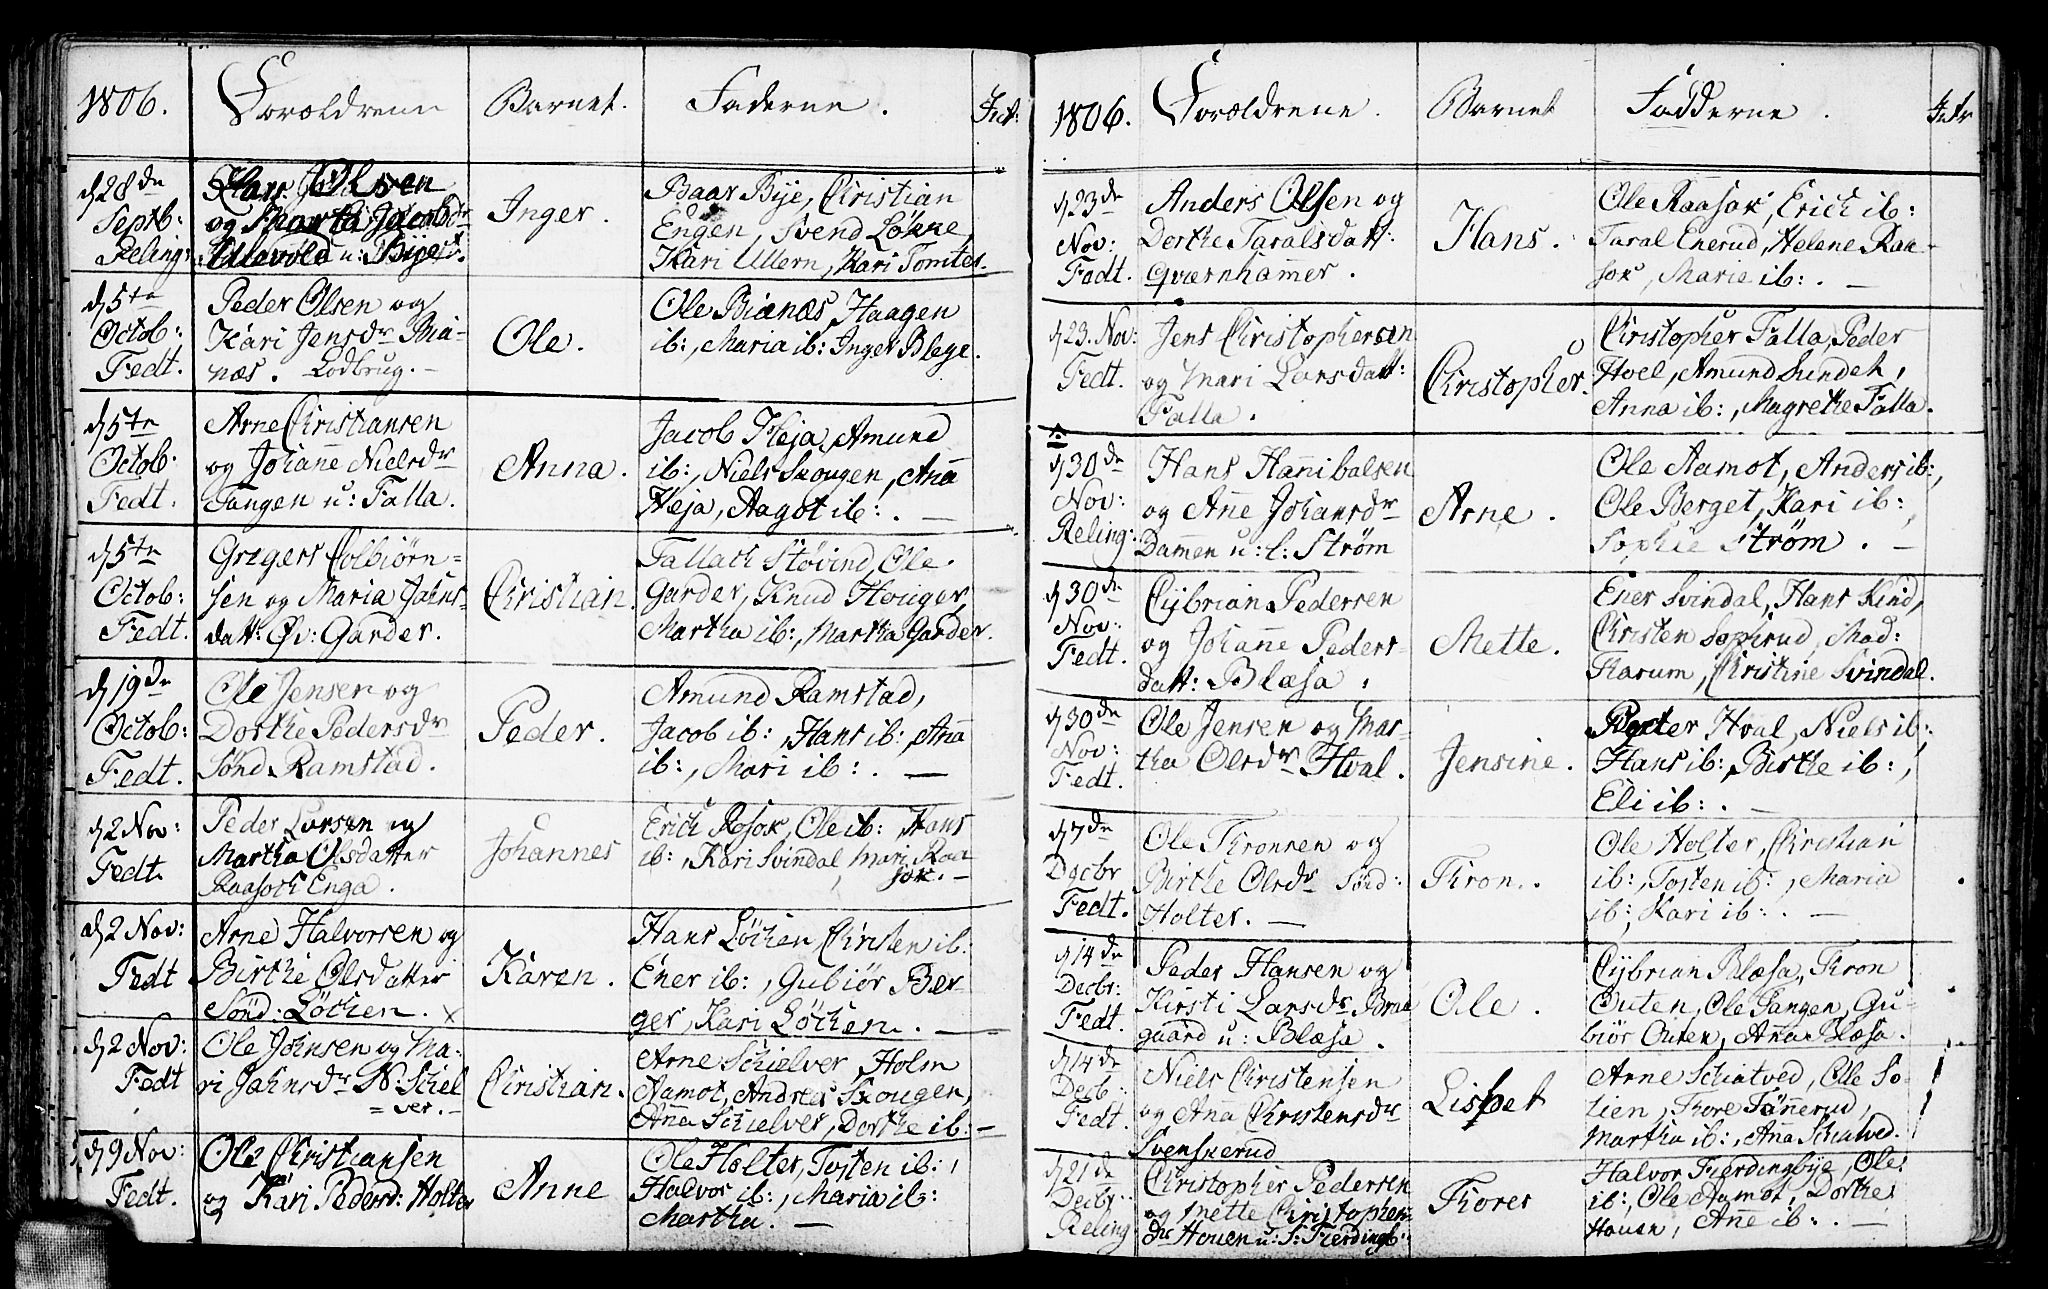 1806. Forældrene Barnet. Faderne. Int:
d 28de Septb: Reling:
Hans Olsen
og Martha Jacobdr
Ullevold u: Bije
Inger.
Baar Bije, Christian
Engen, Svend Løkke,
Kari Ullern, Kari Tomter.
d 5te Octob: Fedt.
Peder Olsen og
Kari Jensdr Biænæs.
Lodbrug. –
Ole.
Ole Biænæs, Haagen
ib:, Maria ib: Inger Blege.
d 5te Octob: Fedt.
Arne Christiansen
og Johanne Nielsdr
Tangen u: Falla.
Anna.
Jacob Heja, Amund
ib:, Niels Skougen, Anna
Heja, Aagot ib: . –
d 5te Octob: Fedt.
Gregers Colbiørn=
sen og Maria Jahns=
datt: Øv: Garder.
Christian.
Tallach Støvind, Ole
Garder, Knud Houger,
Martha ib:, Martha Garder.
d 19de Octob: Fedt.
Ole Jensen og
Dorthe Pedersdr
Sønd. Ramstad.
Peder.
Amund Ramstad,
Jacob ib:, Hans ib:, Anna
ib:, Mari ib: . –
d 2 Nov: Fedt.
Peder Larsen og
Martha Olsdatter
Raasoch Enga.
Johannes
Erich Rosok, Ole ib: Hans
ib:, Kari Svindal, Mari Raa
sok. –
d 2 Nov: Fedt
Arne Halvorsen og
Birthe Olsdatter
Sønd: Løchen. x
Karen.
Hans Løchen Christen ib:
Ener ib:, Gubiør Ber-
ger, Kari Løchen. –
d 2 Nov: Fedt
Ole Johnsen og Ma-
ri Jahnsdr N: Schiel
= ver. –
Christian.
Arne Schielver, Holm
Aamot, Andreas Skougen,
Anna Schielver, Dorthe ib: –
d 9 Nov: Fedt.
Ole Christiansen
og Kari Pedersd: Holter
Anne
Ole Holter, Tosten ib:,
Halvor ib:, Maria ib:
Martha. –
1806. Forældrene. Barnet Fadderne. Intr
d 23de Nov: Fedt.
Anders Olsen og
Dorthe Taralsdatt:
Qværnhammer.
Hans.
Ole Raasok, Erich ib:
Taral Enerud, Helene Raa-
sok, Marie ib: . –
d 23. Nov: Fedt.
Jens Christophersen
og Mari Larsdatt:
Falla.
Christopher.
Christopher Falla, Peder
Hoel, Amund Lundeh,
Anna ib:, Magrethe Falla.
d 30de Nov: Reling:
Hans Hannibalsen
og Anne Johansdr
Dammen u: l: Strøm
Arne.
Ole Aamot, Anders ib:,
Ole Berget, Kari ib:,
Sophie Strøm. –
d 30de Nov: Fedt.
Cybrian Pedersen
og Johanne Peders-
datt: Blæsa.
Mette.
Ener Svindal, Hans Kind,
Christen Sophrud, Mad:
Harum, Christine Svindal.
d 30de Nov: Fedt.
Ole Jensen og Mar-
tha Olsdr Hval.
Jensine.
Peter Hval, Niels ib:
Hans ib:, Birthe ib:,
Eli ib: . –
d 7de Decbr Fedt.
Ole Thronsen og
Birthe Olsdr Sønd:
Holter. –
Thron.
Ole Holter, Christian
ib:, Tosten ib:, Maria
ib:, Kari ib: . –
d 14de Decbr: Fedt.
Peder Hansen og
Kirsti Larsdr Braa
gaard u: Blæsa.
Ole.
Cybrian Blæsa, Thron
Outen, Ole Tangen, Gu-
biør Outen, Anna Blæsa.
d 14de Decb: Fedt.
Niels Christensen
og Anna Christensdr
Svenskerud
Lisbet
Arne Schiatved, Ole So-
lien, Thore Tønnerud,
Martha ib:, Anna Schiatved.
d 21de Decbr: Reling
Christopher Pedersen
og Mette Christophers-
dr Houen u: F: Fierdingb:
Thorer
Halvor Fierdingbye, Ole
ib:, Ole Aamot, Dorthe
Houen, Anne ib: . –